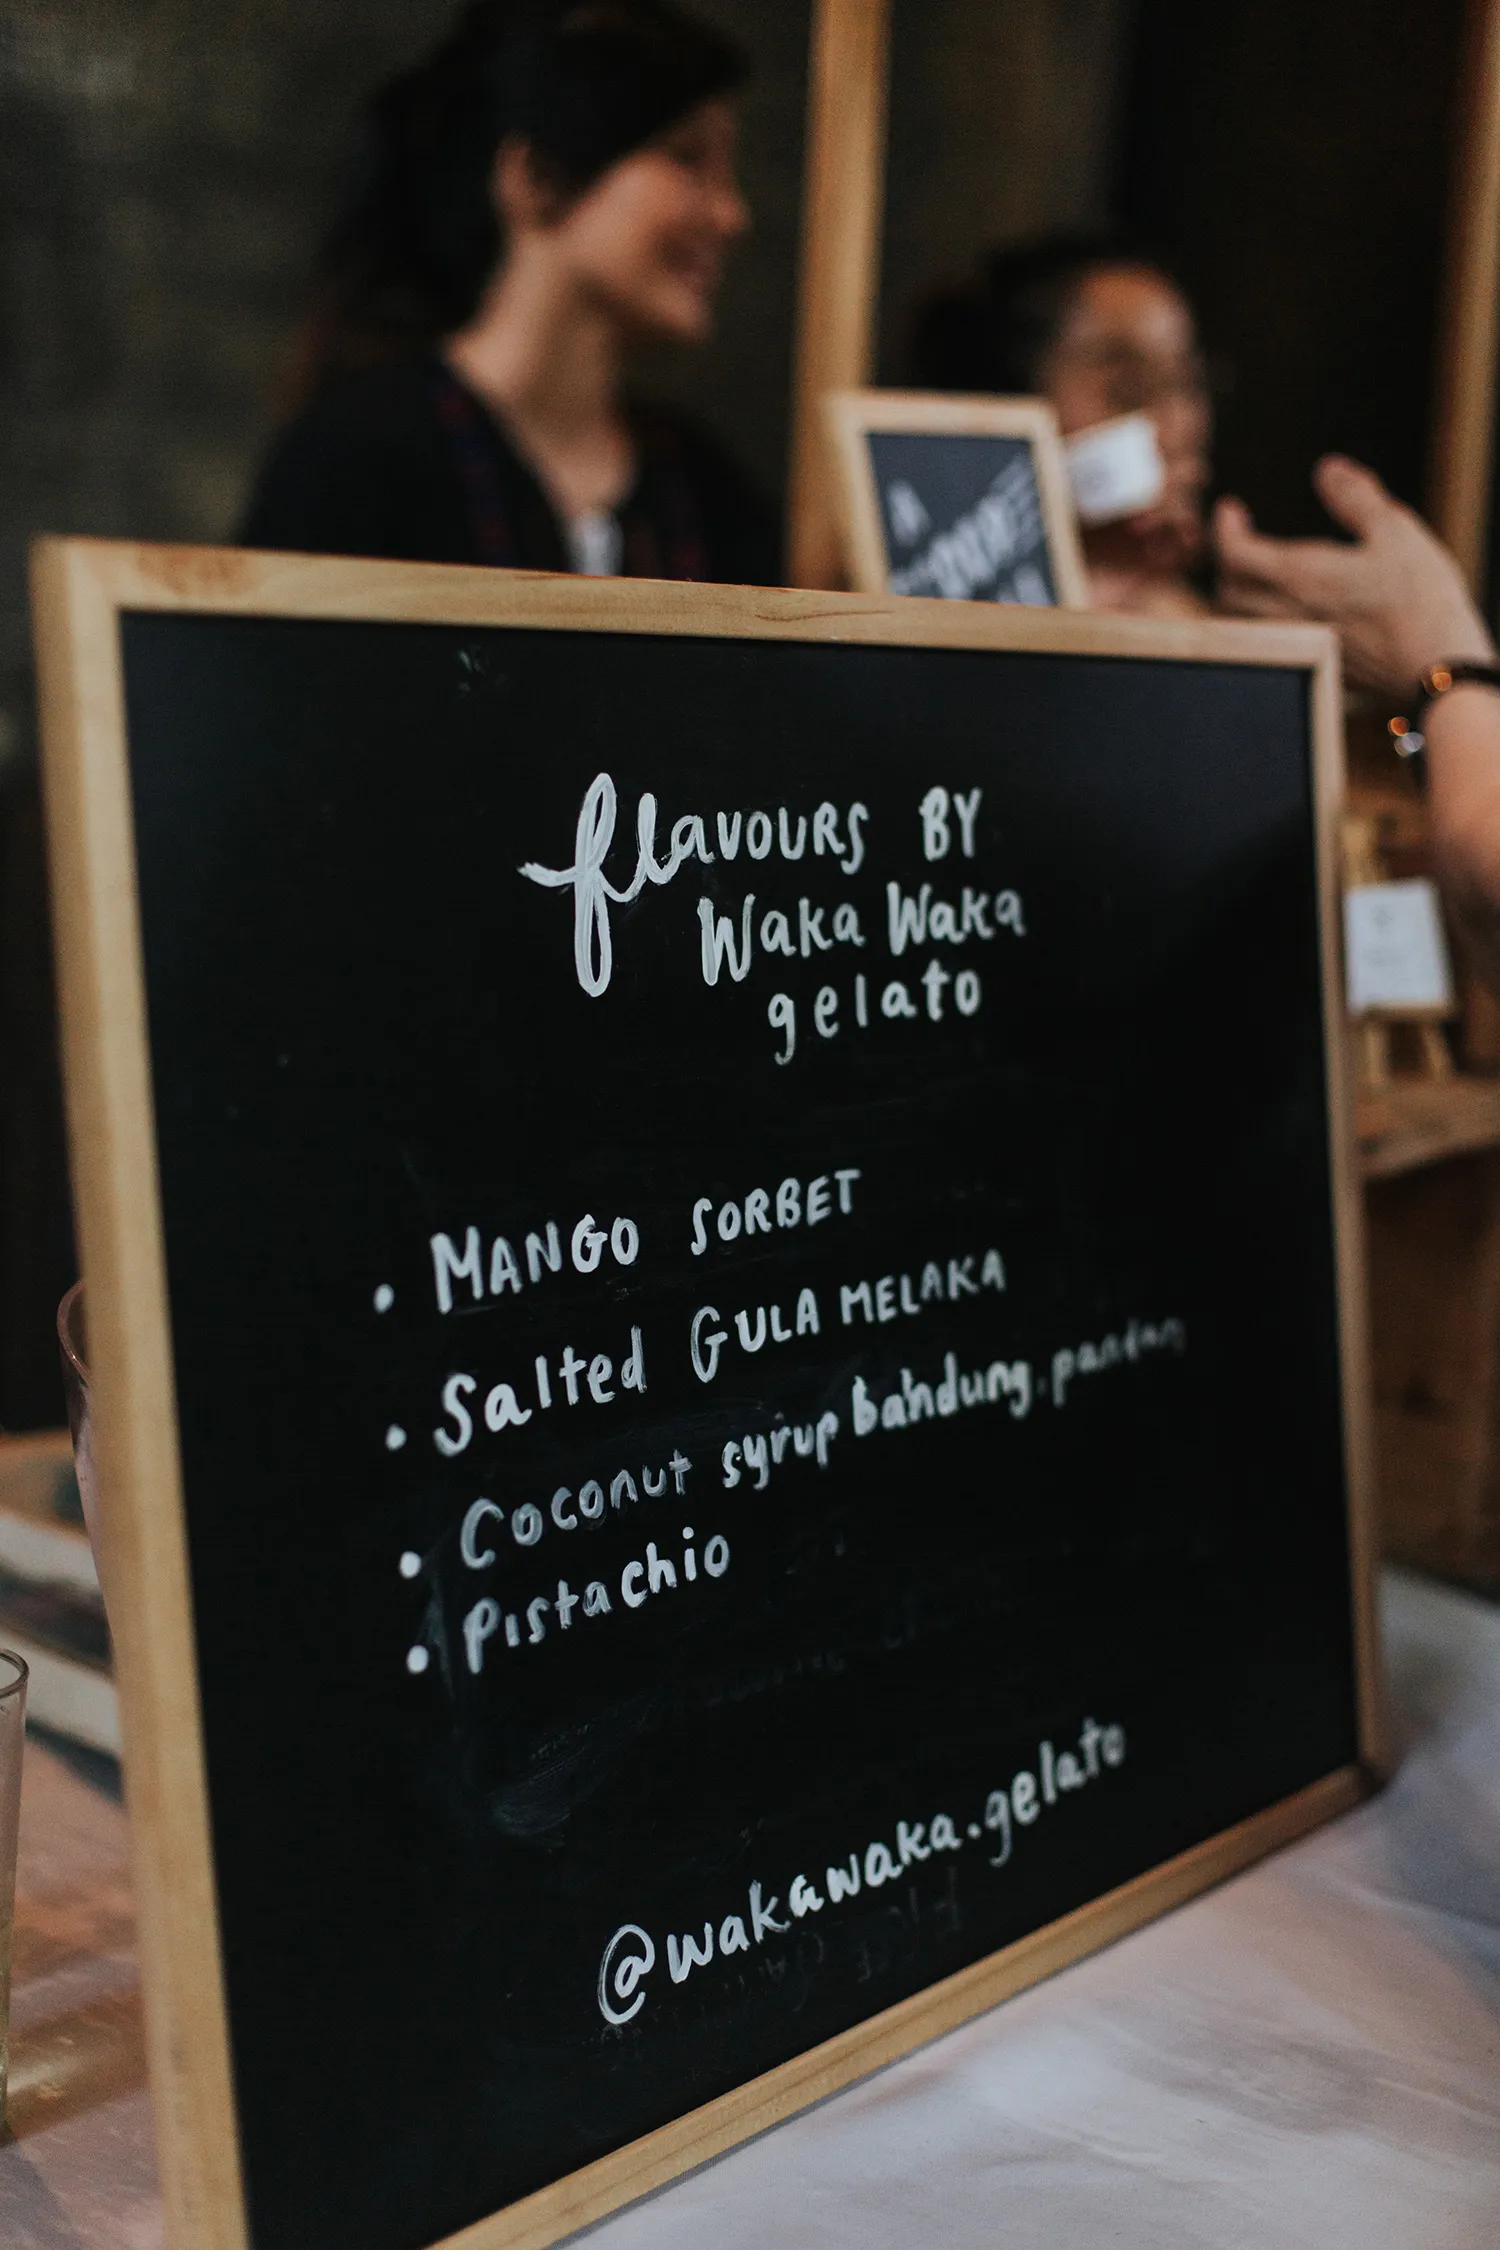 flavours BY
Waka Waka
gelato
• MANGO SORBET
• Salted GULA MELAKA
• Coconut syrup bandung, pandan
• Pistachio
@wakawaka.gelato